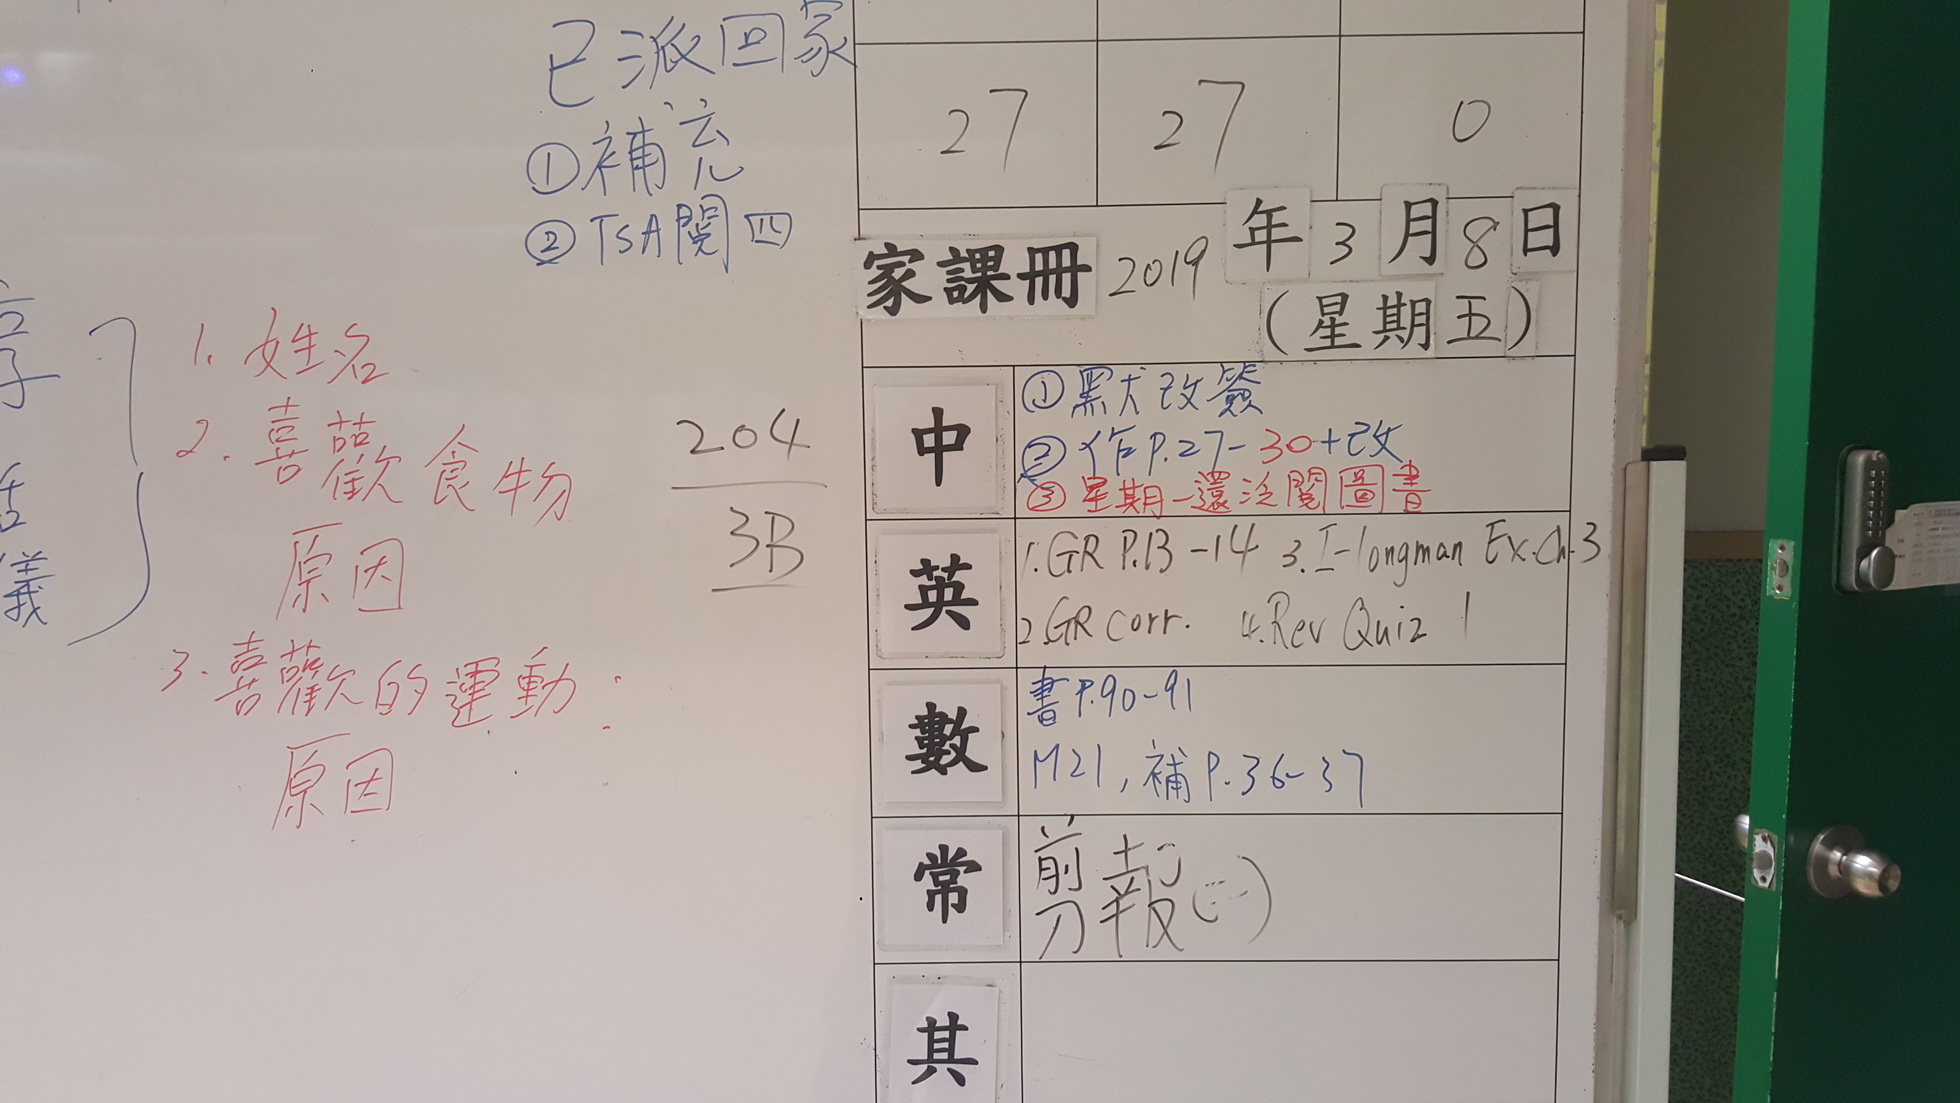 已派回家
①補充
②TSA閱四
1. 姓名
2. 喜歡食物
原因
3. 喜歡的運動:
原因
204
3B
27 27 0
家課冊 2019年3月8日
(星期五)
中
①默犬改簽
②作P.27-30+改
③星期一還泛閱圖書
英
1.GR P.13-14 3.I-longman Ex.Ch.3
2.GR corr. 4.Rev Quiz 1
數
書P.90-91
M21, 補P.36-37
常
剪報(二)
其